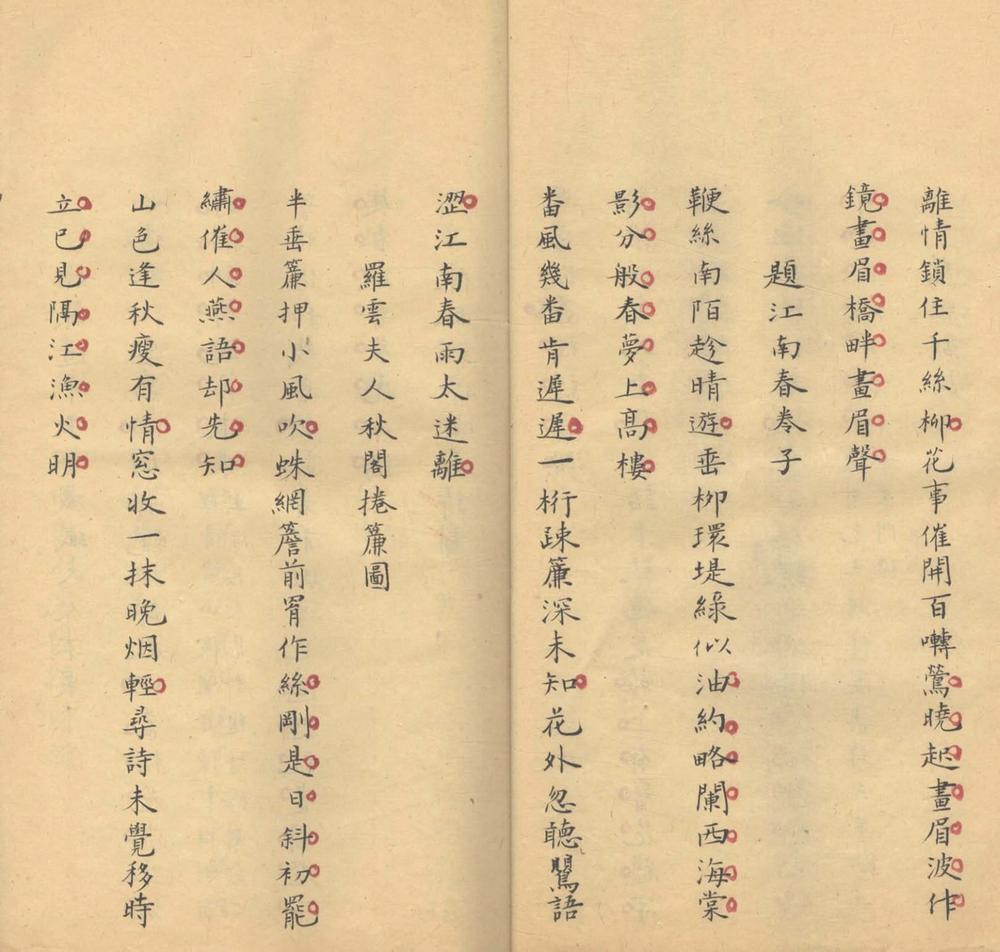 離情鎖住千絲柳花事催開百囀鶯曉起畫眉波作
鏡畫眉橋畔畫眉聲
題江南春卷子
鞭絲南陌趁晴遊垂柳環堤綠似油約略闌西海棠
影分般春夢上高樓
畨風幾畨肯遲遲一桁疎簾深未知花外忽聽鶯語
澀江南春雨太迷離
羅雲夫人秋閣捲簾圖
半垂簾押小風吹蛛網簷前罥作絲剛是日斜初罷
繡催人燕語却先知
山色逢秋瘦有情窓收一抹晚烟輕尋詩未覺移時
立已見隔江漁火明